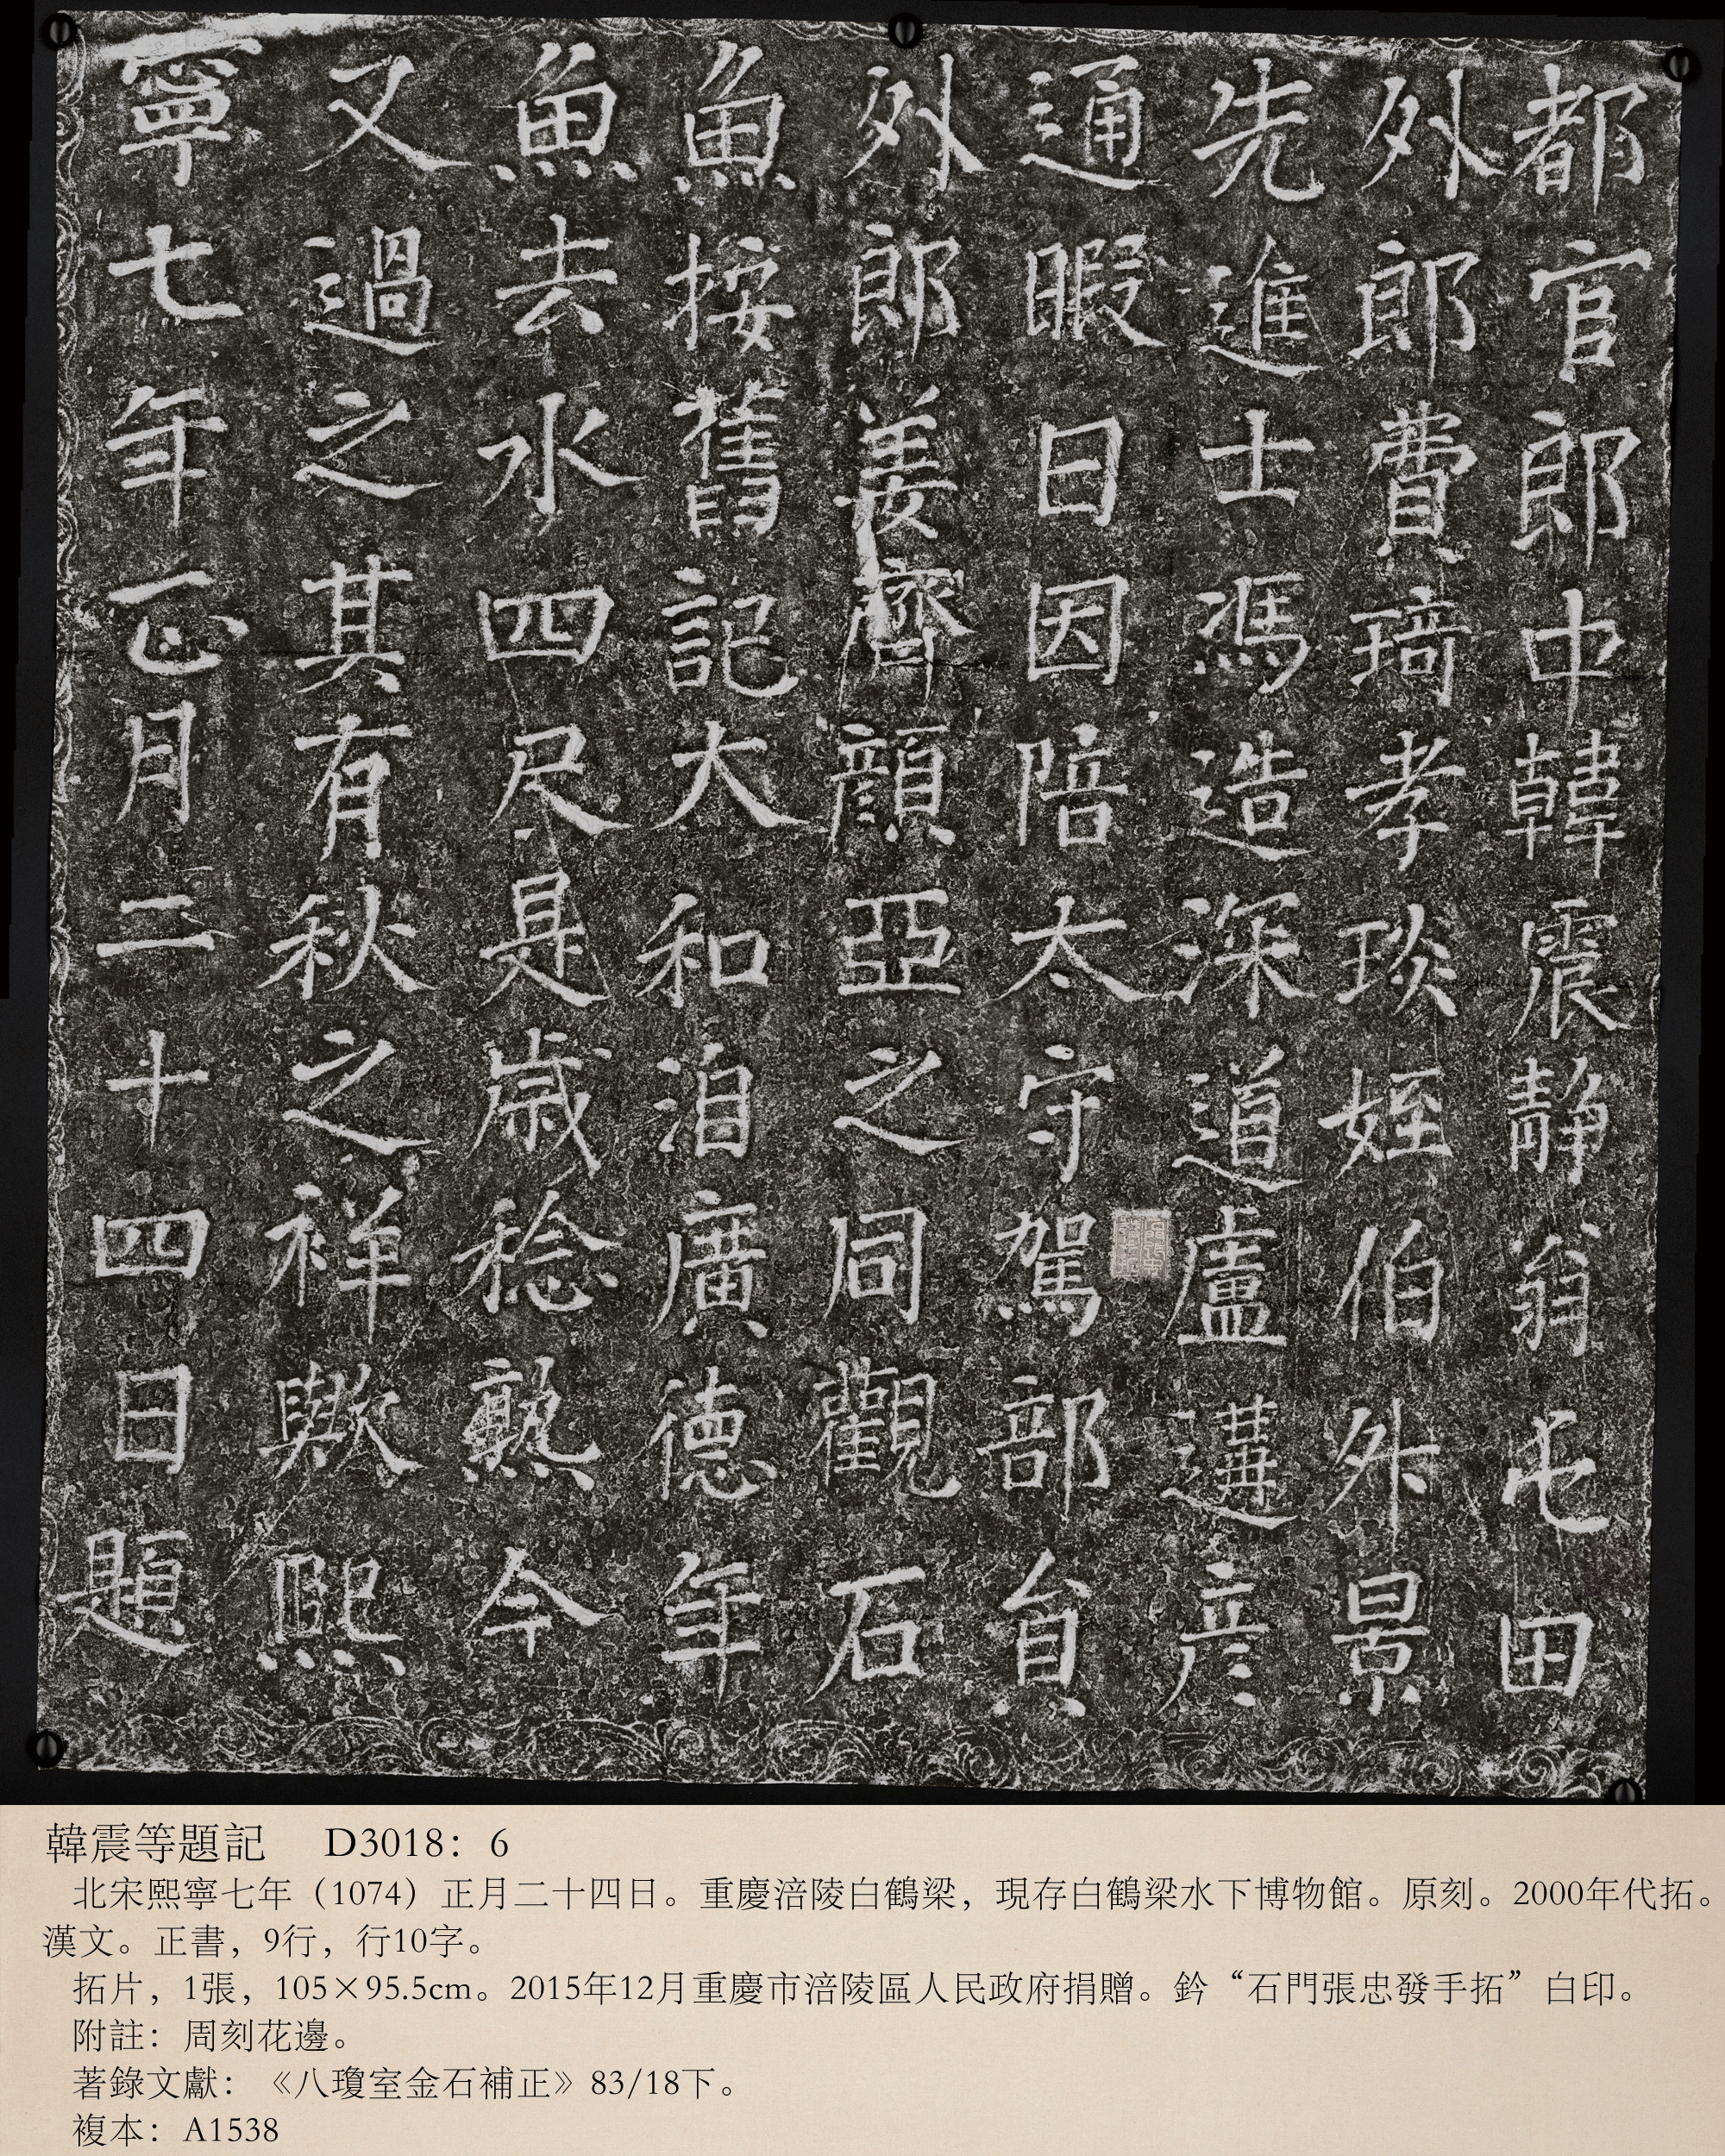 都官郎中韓震靜翁屯田
外郎費琦孝琰姪伯升景
先進士馮造深道盧遘彥
通暇日因陪太守駕部負
外郎姜齊顏亞之同觀石
魚按舊記大和洎廣德年
魚去水四尺是歲稔熟今
又過之其有秋之祥歟熙
寧七年正月二十四日題
韓震等題記 D3018：6
北宋熙寧七年（1074）正月二十四日。重慶涪陵白鶴梁，現存白鶴梁水下博物館。原刻。2000年代拓。
漢文。正書，9行，行10字。
拓片，1張，105×95.5cm。2015年12月重慶市涪陵區人民政府捐贈。鈐“石門張忠發手拓”白印。
附註：周刻花邊。
著錄文獻：《八瓊室金石補正》83/18下。
複本：A1538